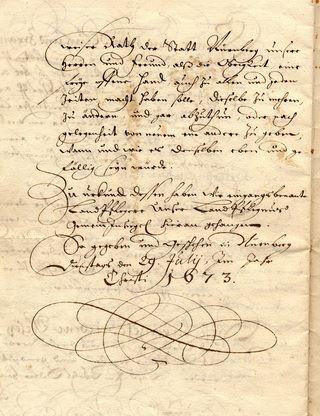 weiser Rath der Statt Nürnberg unsere
Herren und Freund, als die Obrigkeit eine
offene Hand auch zu allen und jeden
Zeiten macht haben solle, dieselbe zu mehren,
zu ändern und gar abzuthun oder nach
gelegenheit von neuem ein andere zu geben,
wann und wie es denselben eben und ge
fällig seyn würde.
Zu urkund dessen haben wir eingangs benante
Land Pflegere Unser Land Pflegnus
Gemein Insiegel hieran gehangen.
So gegeben und Geschehen in Nürnberg
Dienstags den 29 July, Im Jahr
Christi 1673.